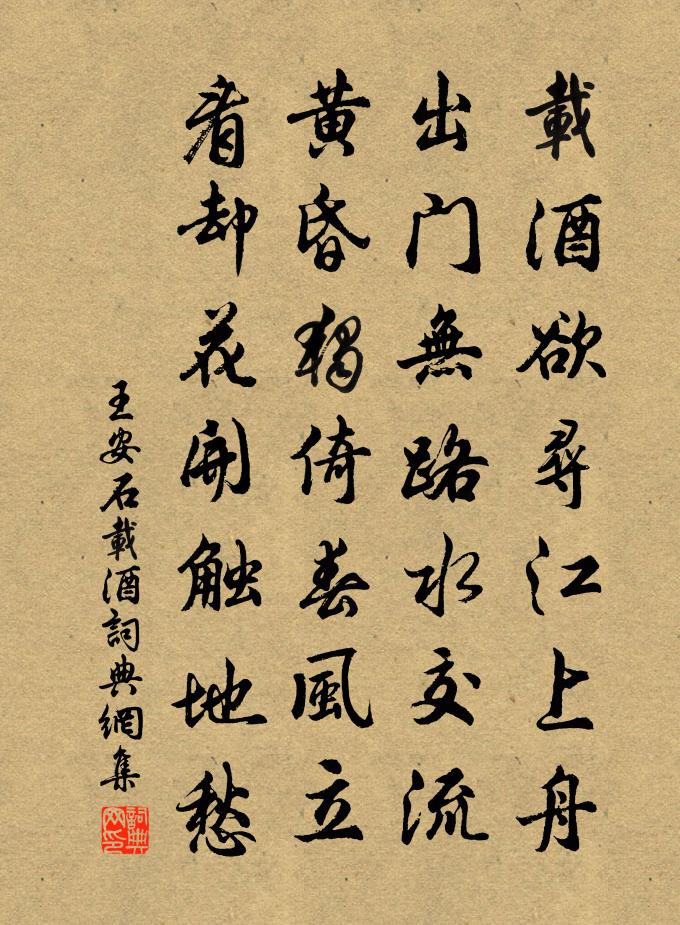 載酒欲尋江上舟
出门無路水交流
黄昏獨倚春風立
看却花開触地愁
王安石載酒詞典網集
詞典網印